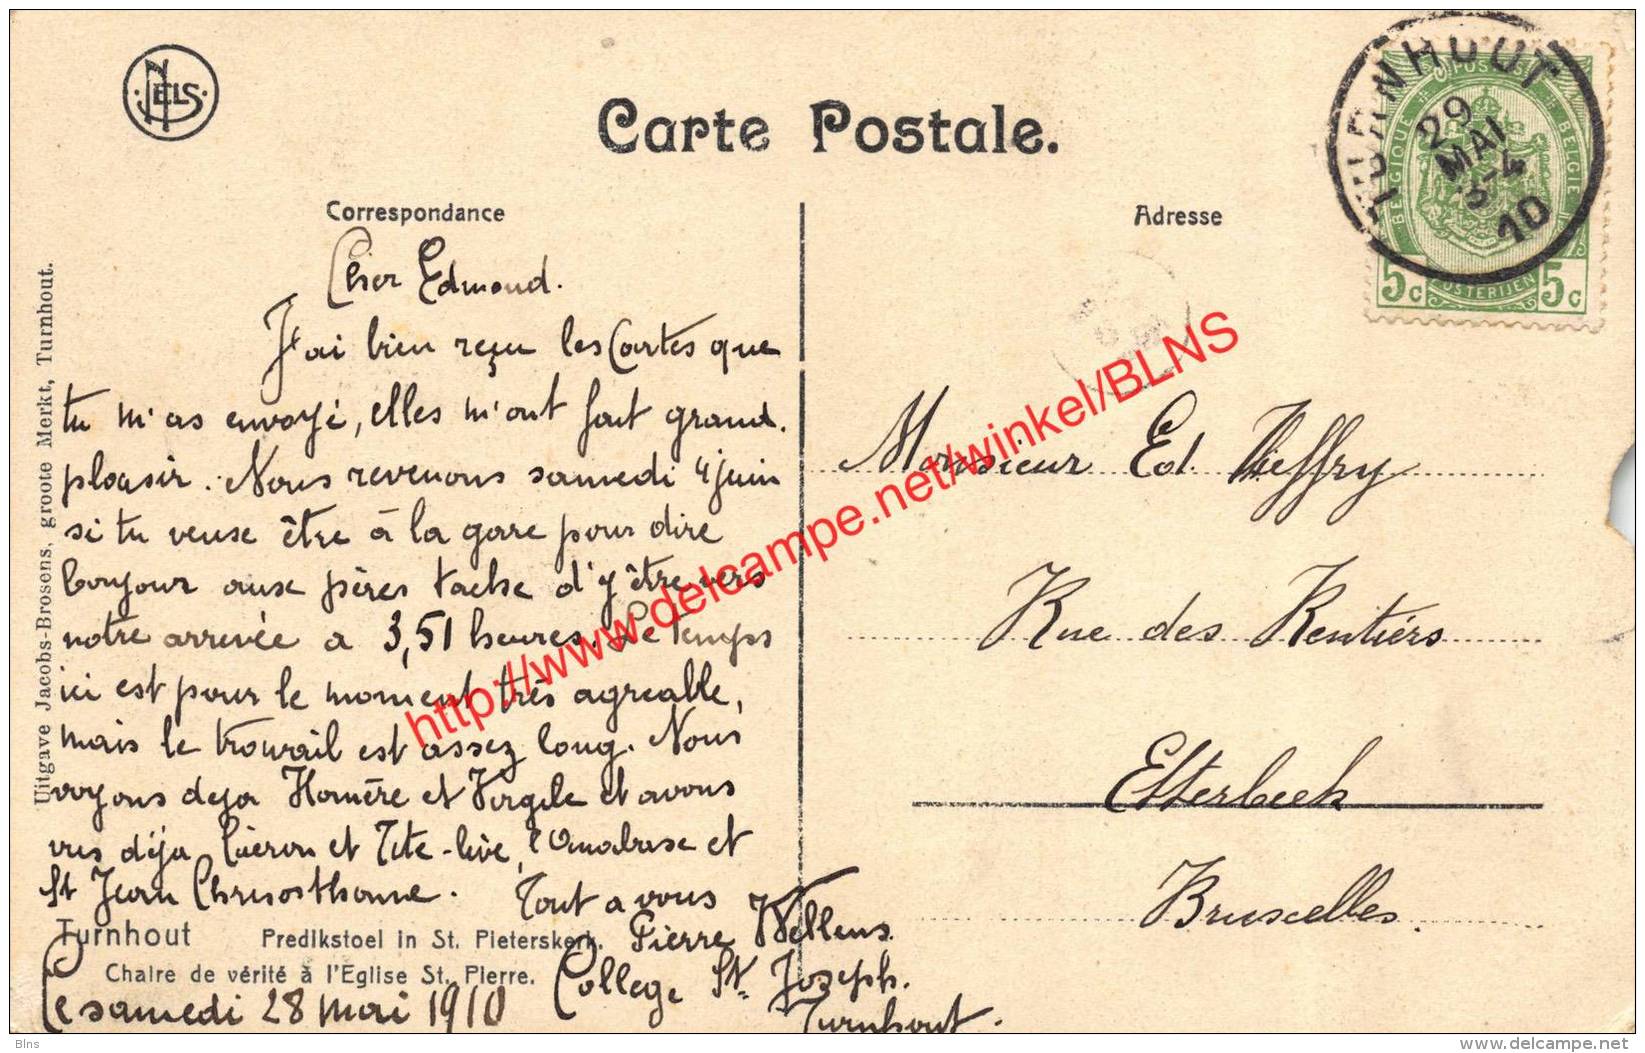 NELS
Carte Postale.
Correspondance
Adresse
TURNHOUT
29
MAI
3-4
10
POSTES
BELGIQUE
BELGIE
POSTERIJEN
5c
5c
Uitgave Jacobs-Brosens, groote Merkt, Turnhout.
Cher Edmond.
J'ai bien reçu les Cartes que
tu m'as envoyé, elles m'ont fait grand.
plaisir. Nous revenons samedi 4 juin
si tu veuse être à la gare pour dire
bonjour ause pères tache d'y être vers
notre arrivée a 3,51 heures. Le Temps
ici est pour le moment très agreable,
mais le travail est assez long. Nous
voyons deja Homère et Virgile et avons
vus déja Ciceron et Tite-live, l'Anabase et
St Jean Chrisosthome. Tout a vous
Pierre Wellens.
College St. Joseph.
Turnhout.
Ce samedi 28 mai 1910
Turnhout Predikstoel in St. Pieterskerk.
Chaire de vérité à l'Eglise St. Pierre.
Monsieur Ed. Thieffry
Rue des Rentiers
Etterbeek
Bruxelles.
http://www.delcampe.net/winkel/BLNS
Blns
www.delcampe.net